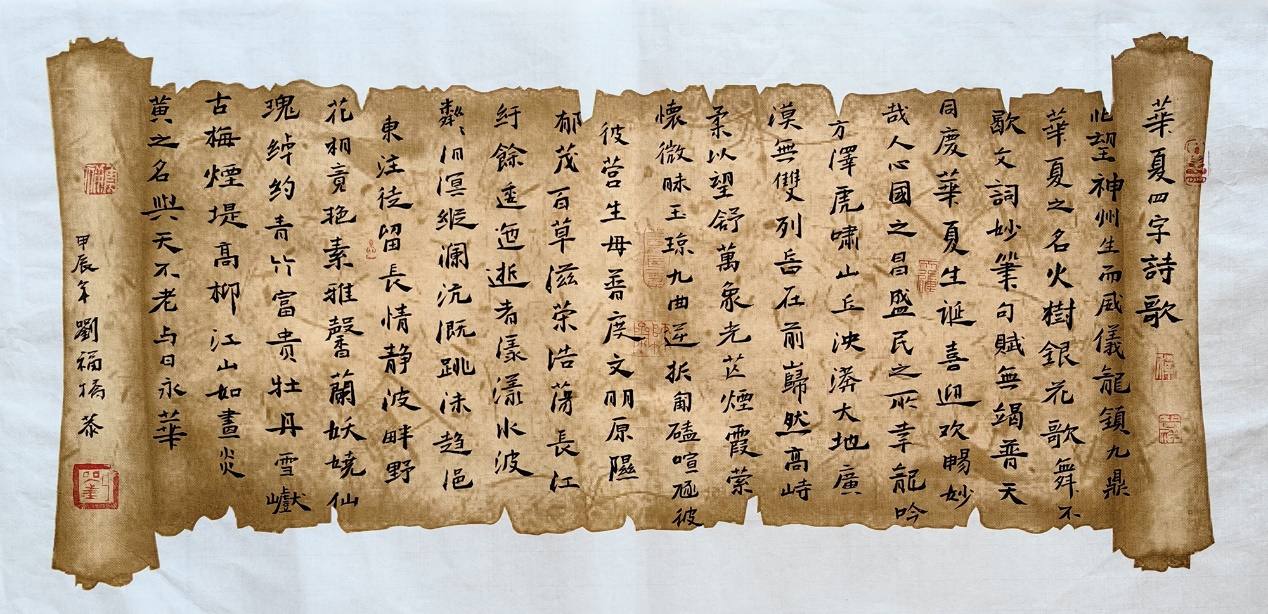 華夏四字詩歌
北望神州生而威儀龍鎮九鼎
華夏之名火樹銀花歌舞不
歇文詞妙筆句賦無竭普天
同慶華夏生誕喜迎欢畅妙
哉人心國之昌盛民之所幸龍吟
方澤虎嘯山丘泱漭大地廣
漠無雙列岳在前巋然高峙
柔以望舒萬象光芒煙霞縈
懷微昧玉琼九曲逆折匐磕喧
彼营生毋普度文明原隰
郁茂百草滋荣浩蕩長江
紆餘逶迤逝者漾漾水波
粼粼汩溟縱澜沆溉跳沫趋浥
東注徒留長情静波畔野
花相竟艳素雅馨蘭妖娆仙
瑰绰约青竹富贵牡丹雪巘
古梅煙堤高柳江山如畫炎
黄之名與天不老与日永華
甲辰年劉福橋恭